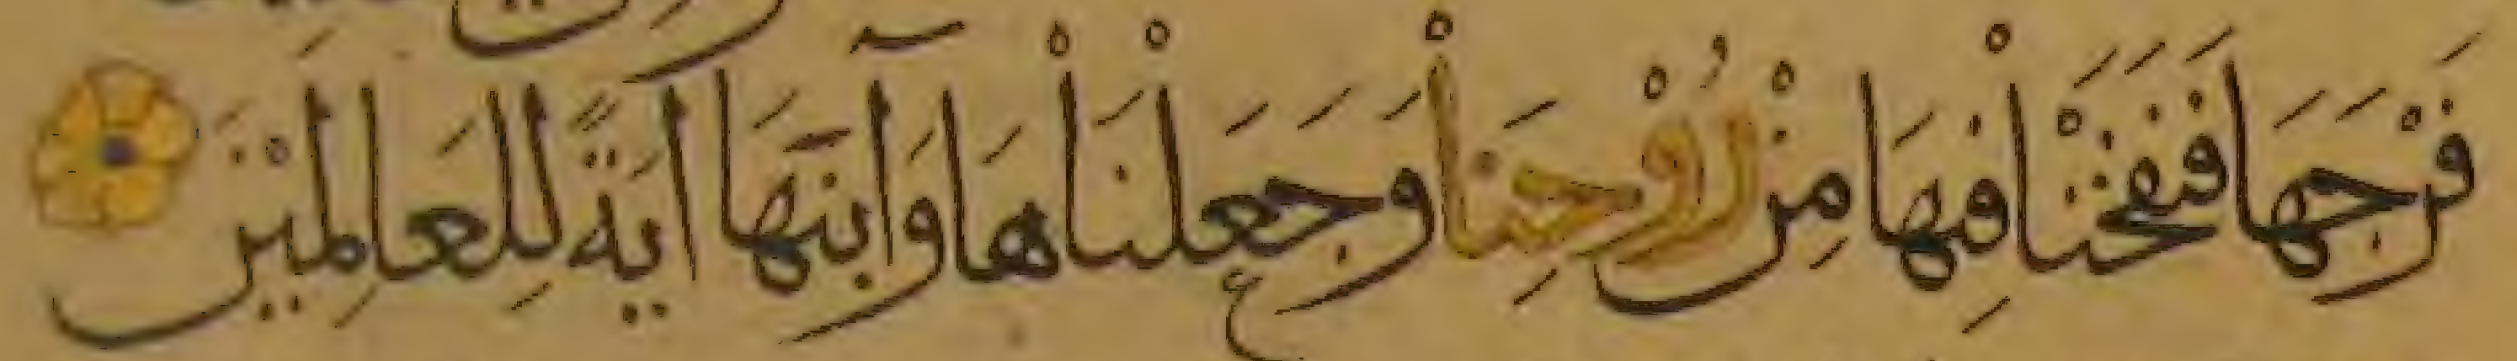 فَرْجَهَا فَنَفَخْنَا فِيهَا مِنْ رُوْحِنَا وَجَعَلْنَاهَا وَآبْنَهَا آيَةً لِلْعَالَمِيْنَ